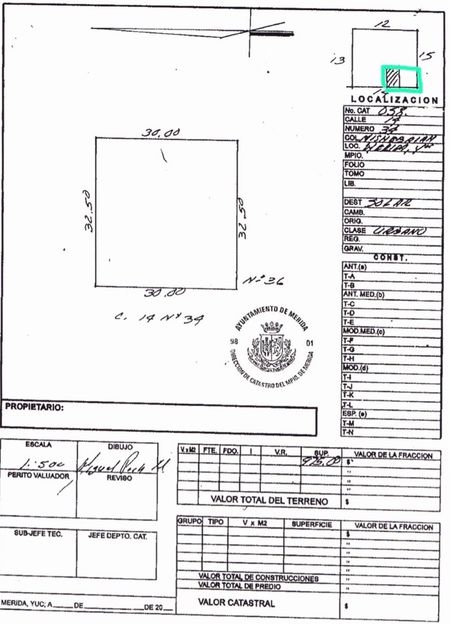 12
13
15
14
LOCALIZACION
No. CAT 053
CALLE 14
NUMERO 34
COL.
LOC. MERIDA, Yuc
MPIO.
FOLIO
TOMO
LIB.
DEST SOLAR
CAMB.
ORIG.
CLASE URBANO
REG.
GRAV.
CONST.
ANT.(a)
T-A
T-B
ANT. MED.(b)
T-C
T-D
T-E
MOD.MED.(c)
T-F
T-G
T-H
MOD.(d)
T-I
T-J
T-K
T-L
ESP. (e)
T-M
T-N
30.00
32.50
32.50
30.00
Nº 36
C. 14 Nº 34
AYUNTAMIENTO DE MERIDA
98 01
DIRECCION DE CATASTRO DEL MPIO. DE MERIDA
PROPIETARIO:
ESCALA DIBUJO
1:500 Miguel
PERITO VALUADOR REVISO
SUB-JEFE TEC. JEFE DEPTO. CAT.
V x M2 FTE. FDO. I V.R. SUP. VALOR DE LA FRACCION
975.00 $
"
"
"
VALOR TOTAL DEL TERRENO $
GRUPO TIPO V x M2 SUPERFICIE VALOR DE LA FRACCION
$
"
"
"
VALOR TOTAL DE CONSTRUCCIONES "
VALOR TOTAL DE PREDIO "
VALOR CATASTRAL $
MERIDA, YUC; A_____ DE __________ DE 20___